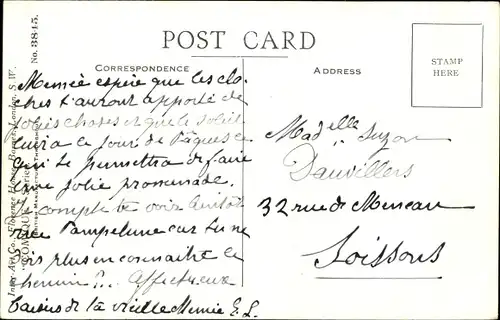 POST CARD
CORRESPONDENCE
ADDRESS
STAMP
HERE
No. 3845.
Inter Art Co., Florence House, Barnes, London, S.W.
"COMIQUE" Series
Memée espère que les clo
ches t'auront apporté de
jolies choses et que le soleil
luira le jour de Pâques ce
qui te permettra de faire
une jolie promenade.
J'y compte te voir
Pampelune car tu ne
dois plus en connaitre le
chemin?.. Affectueux
baisers de ta vieille Memée E. L.
Madelle Suzon
Dauvillers
32 rue de
Soissons